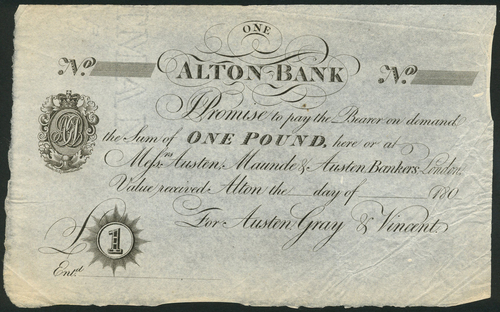 ONE
No. No.
ALTON-BANK
I Promise to pay the Bearer on demand
the Sum of ONE POUND, here or at
Messrs. Austen, Maunde & Austen, Bankers, London.
Value received Alton the day of 180
For Austen, Gray & Vincent.
£ 1
Entd.